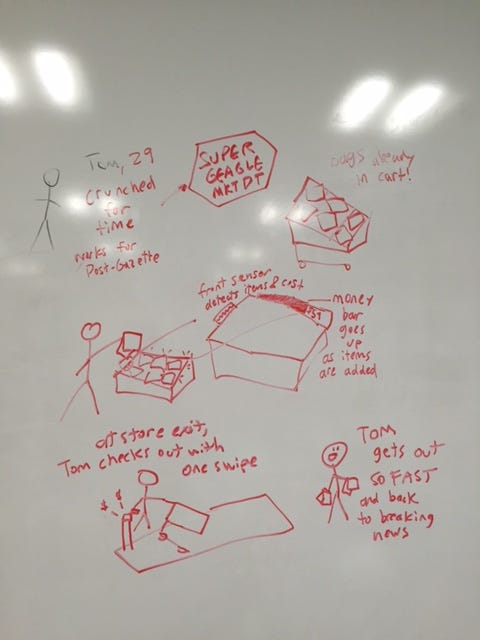 Tom, 29
crunched
for
time
works for
Post-Gazette
SUPER
GEAGLE
MKTDT
bags already
in cart!
front sensor
detects items & cost
money
bar
goes
up
as items
are added
at store exit,
Tom checks out with
one swipe
$ $
TOM
gets out
SO FAST
and back
to breaking
news